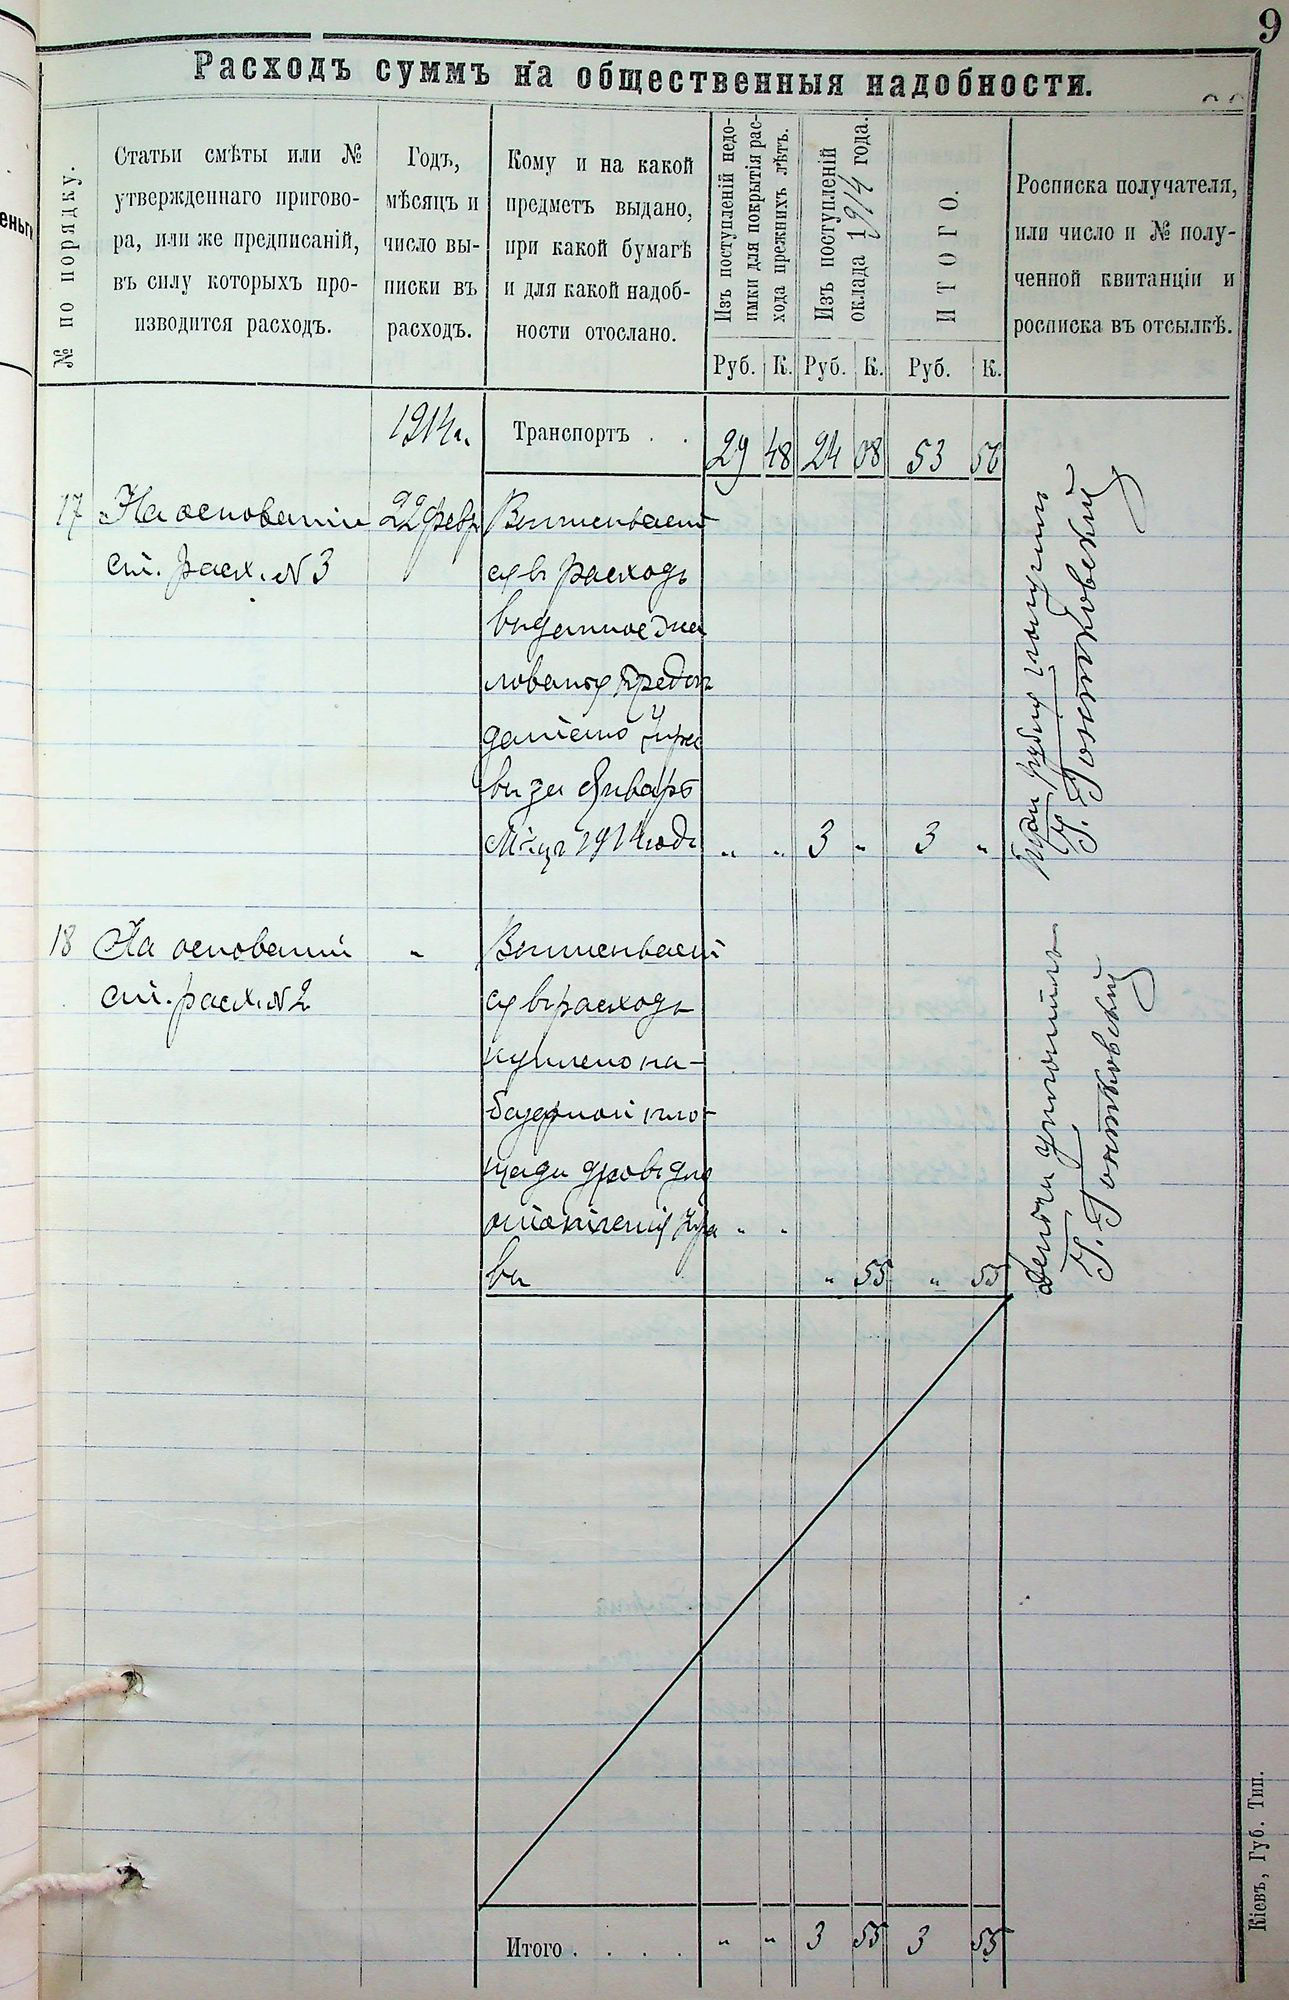 9
Расходъ суммъ на общественныя надобности.
№ по порядку.
Статьи смѣты или №
утвержденнаго пригово-
ра, или же предписаній,
въ силу которыхъ про-
изводится расходъ.
Годъ,
мѣсяцъ и
число вы-
писки въ
расходъ.
Кому и на какой
предметъ выдано,
при какой бумагѣ
и для какой надоб-
ности отослано.
Изъ поступленій недо-
имки для покрытія рас-
хода прежнихъ лѣтъ.
Изъ поступленій
оклада 1914 года.
ИТОГО.
Росписка получателя,
или число и № полу-
ченной квитанціи и
росписка въ отсылкѣ.
Руб. К. Руб. К. Руб. К.
1914 г. Транспортъ . . 29 48 24 08 53 56
17 На основаніи 22 февр. Выписывает
ст. расх. № 3 ся въ расходъ
выданное жа
лованье
Упра
вы за Январь
М-цъ 1914 года „ „ 3 „ 3 „
рубля получилъ
Г. Гонтковскій
18 На основаніи „ Выписывает
ст. расх. № 2 ся въ расходъ
куплено на-
базарной пло-
щади дровъ для
отопленія Упра „ „
вы „ 55 „ 55
Деньги уплотилъ
Г. Гонтковскій
Итого . . . . „ „ 3 55 3 55
Кіевъ, Губ. Тип.